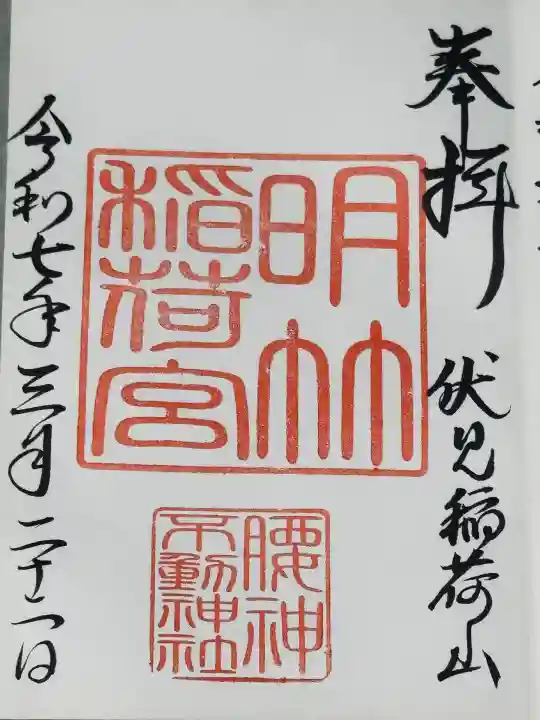 奉拝
伏見稲荷山
明竹
稲荷宮
腰神
不動神社
令和七年三月二十二日